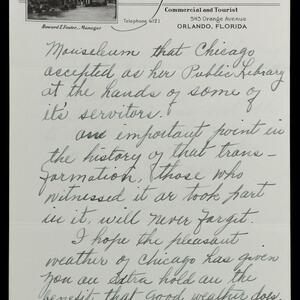 Commercial and Tourist
545 Orange Avenue
ORLANDO, FLORIDA
Howard L. Foster, Manager
Telephone 4121
Mouseleum that Chicago
accepted as her Public Library
at the hands of some of
it's servitors.
One important point in
the history of that trans-
formation, those who
witnessed it or took part
in it, will never forget.
I hope the pleasant
weather of Chicago has given
you an extra hold on the
benefit that good weather does